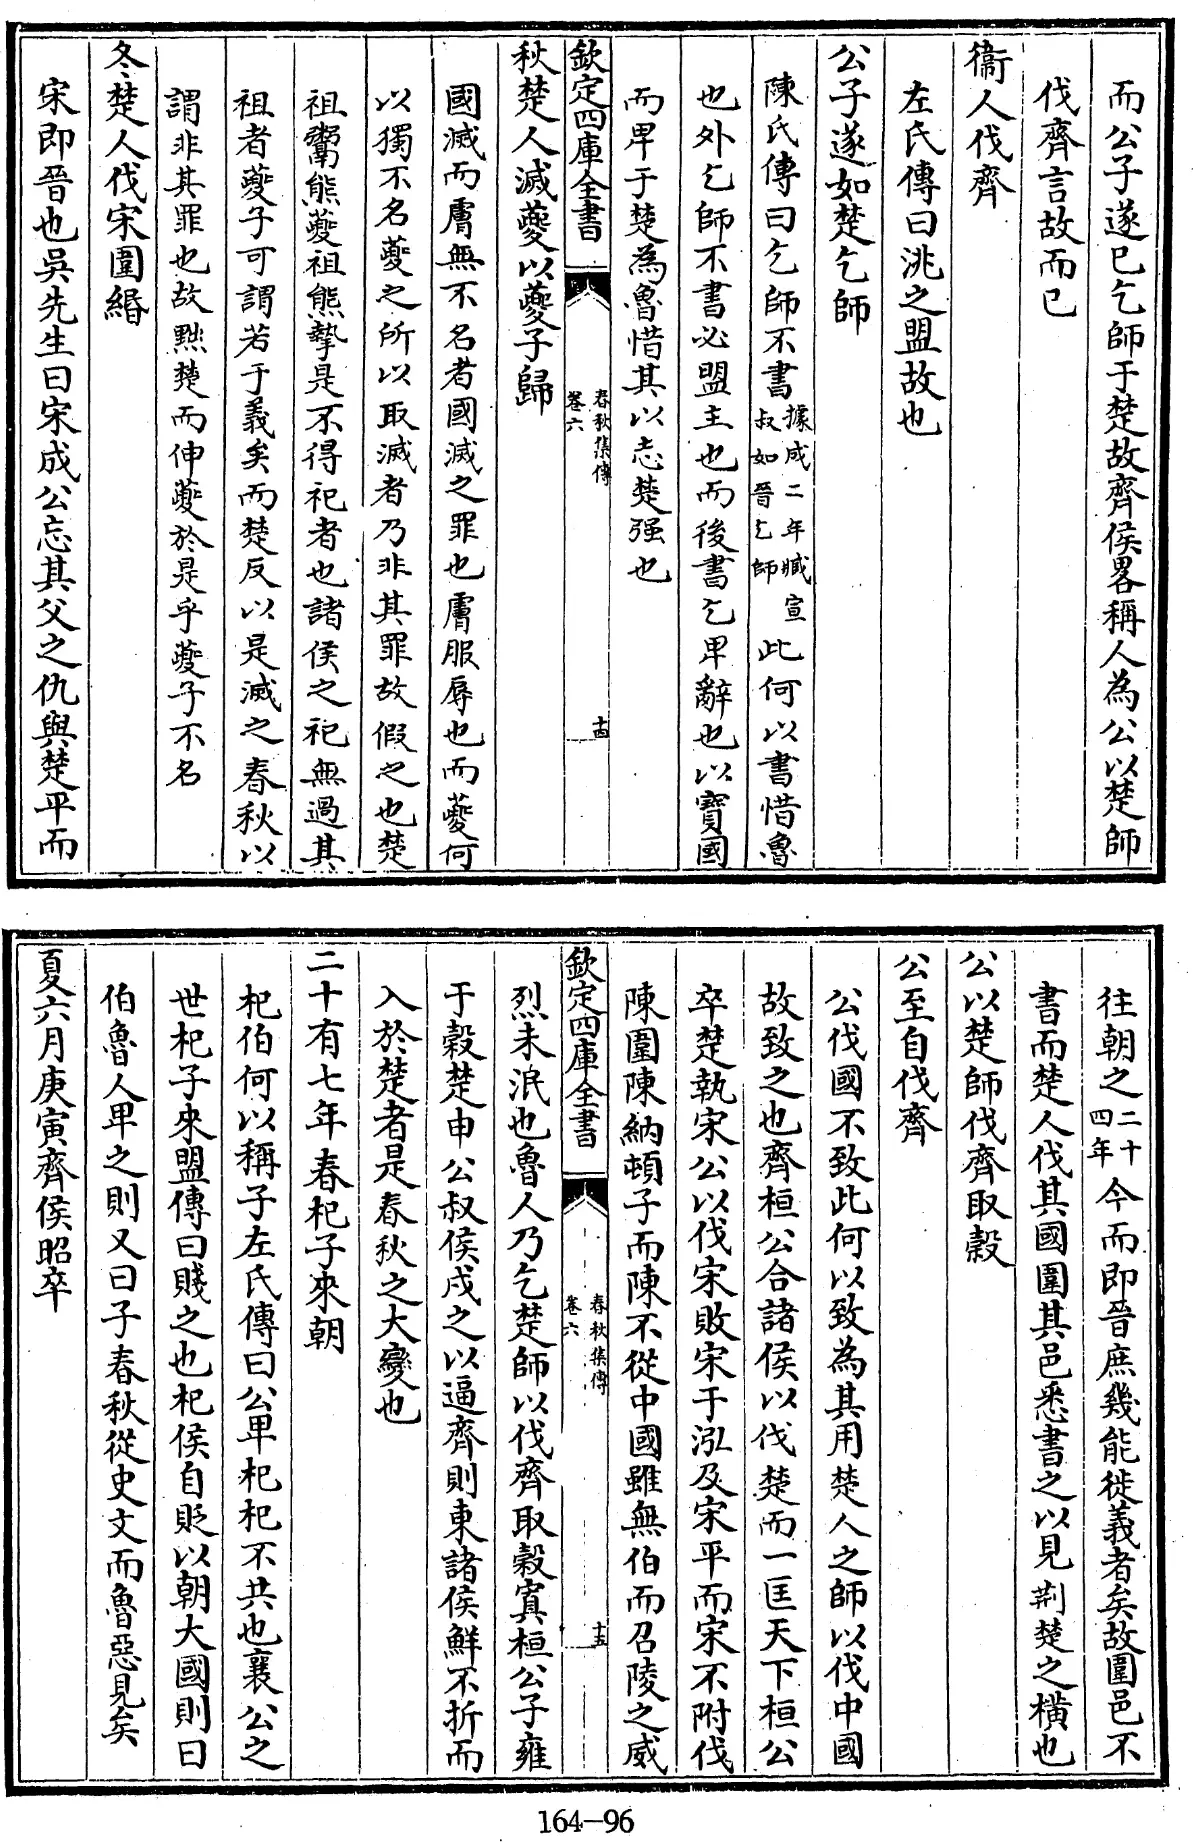 而公子遂已乞師于楚故齊侯畧稱人為公以楚師
伐齊言故而已
衞人伐齊
左氏傳曰洮之盟故也
公子遂如楚乞師
陳氏傳曰乞師不書據成二年臧宣叔如晉乞師此何以書惜魯
也外乞師不書必盟主也而後書乞卑辭也以寶國
而卑于楚為魯惜其以志楚强也
欽定四庫全書
春秋集傳
卷六
十四
秋楚人滅夔以夔子歸
國滅而虜無不名者國滅之罪也虜服辱也而夔何
以獨不名夔之所以取滅者乃非其罪故假之也楚
祖鬻熊夔祖熊摯是不得祀者也諸侯之祀無過其
祖者夔子可謂若于義矣而楚反以是滅之春秋以
謂非其罪也故黜楚而伸夔於是乎夔子不名
冬楚人伐宋圍緡
宋即晉也吳先生曰宋成公忘其父之仇與楚平而
往朝之二十四年今而即晉庶幾能徙義者矣故圍邑不
書而楚人伐其國圍其邑悉書之以見荆楚之橫也
公以楚師伐齊取穀
公至自伐齊
公伐國不致此何以致為其用楚人之師以伐中國
故致之也齊桓公合諸侯以伐楚而一匡天下桓公
卒楚執宋公以伐宋敗宋于泓及宋平而宋不附伐
陳圍陳納頓子而陳不從中國雖無伯而召陵之威
欽定四庫全書
春秋集傳
卷六
十五
烈未泯也魯人乃乞楚師以伐齊取穀寘桓公子雍
于穀楚申公叔侯戍之以逼齊則東諸侯鮮不折而
入於楚者是春秋之大變也
二十有七年春杞子來朝
杞伯何以稱子左氏傳曰公卑杞杞不共也襄公之
世杞子來盟傳曰賤之也杞侯自貶以朝大國則曰
伯魯人卑之則又曰子春秋從史文而魯惡見矣
夏六月庚寅齊侯昭卒
164-96